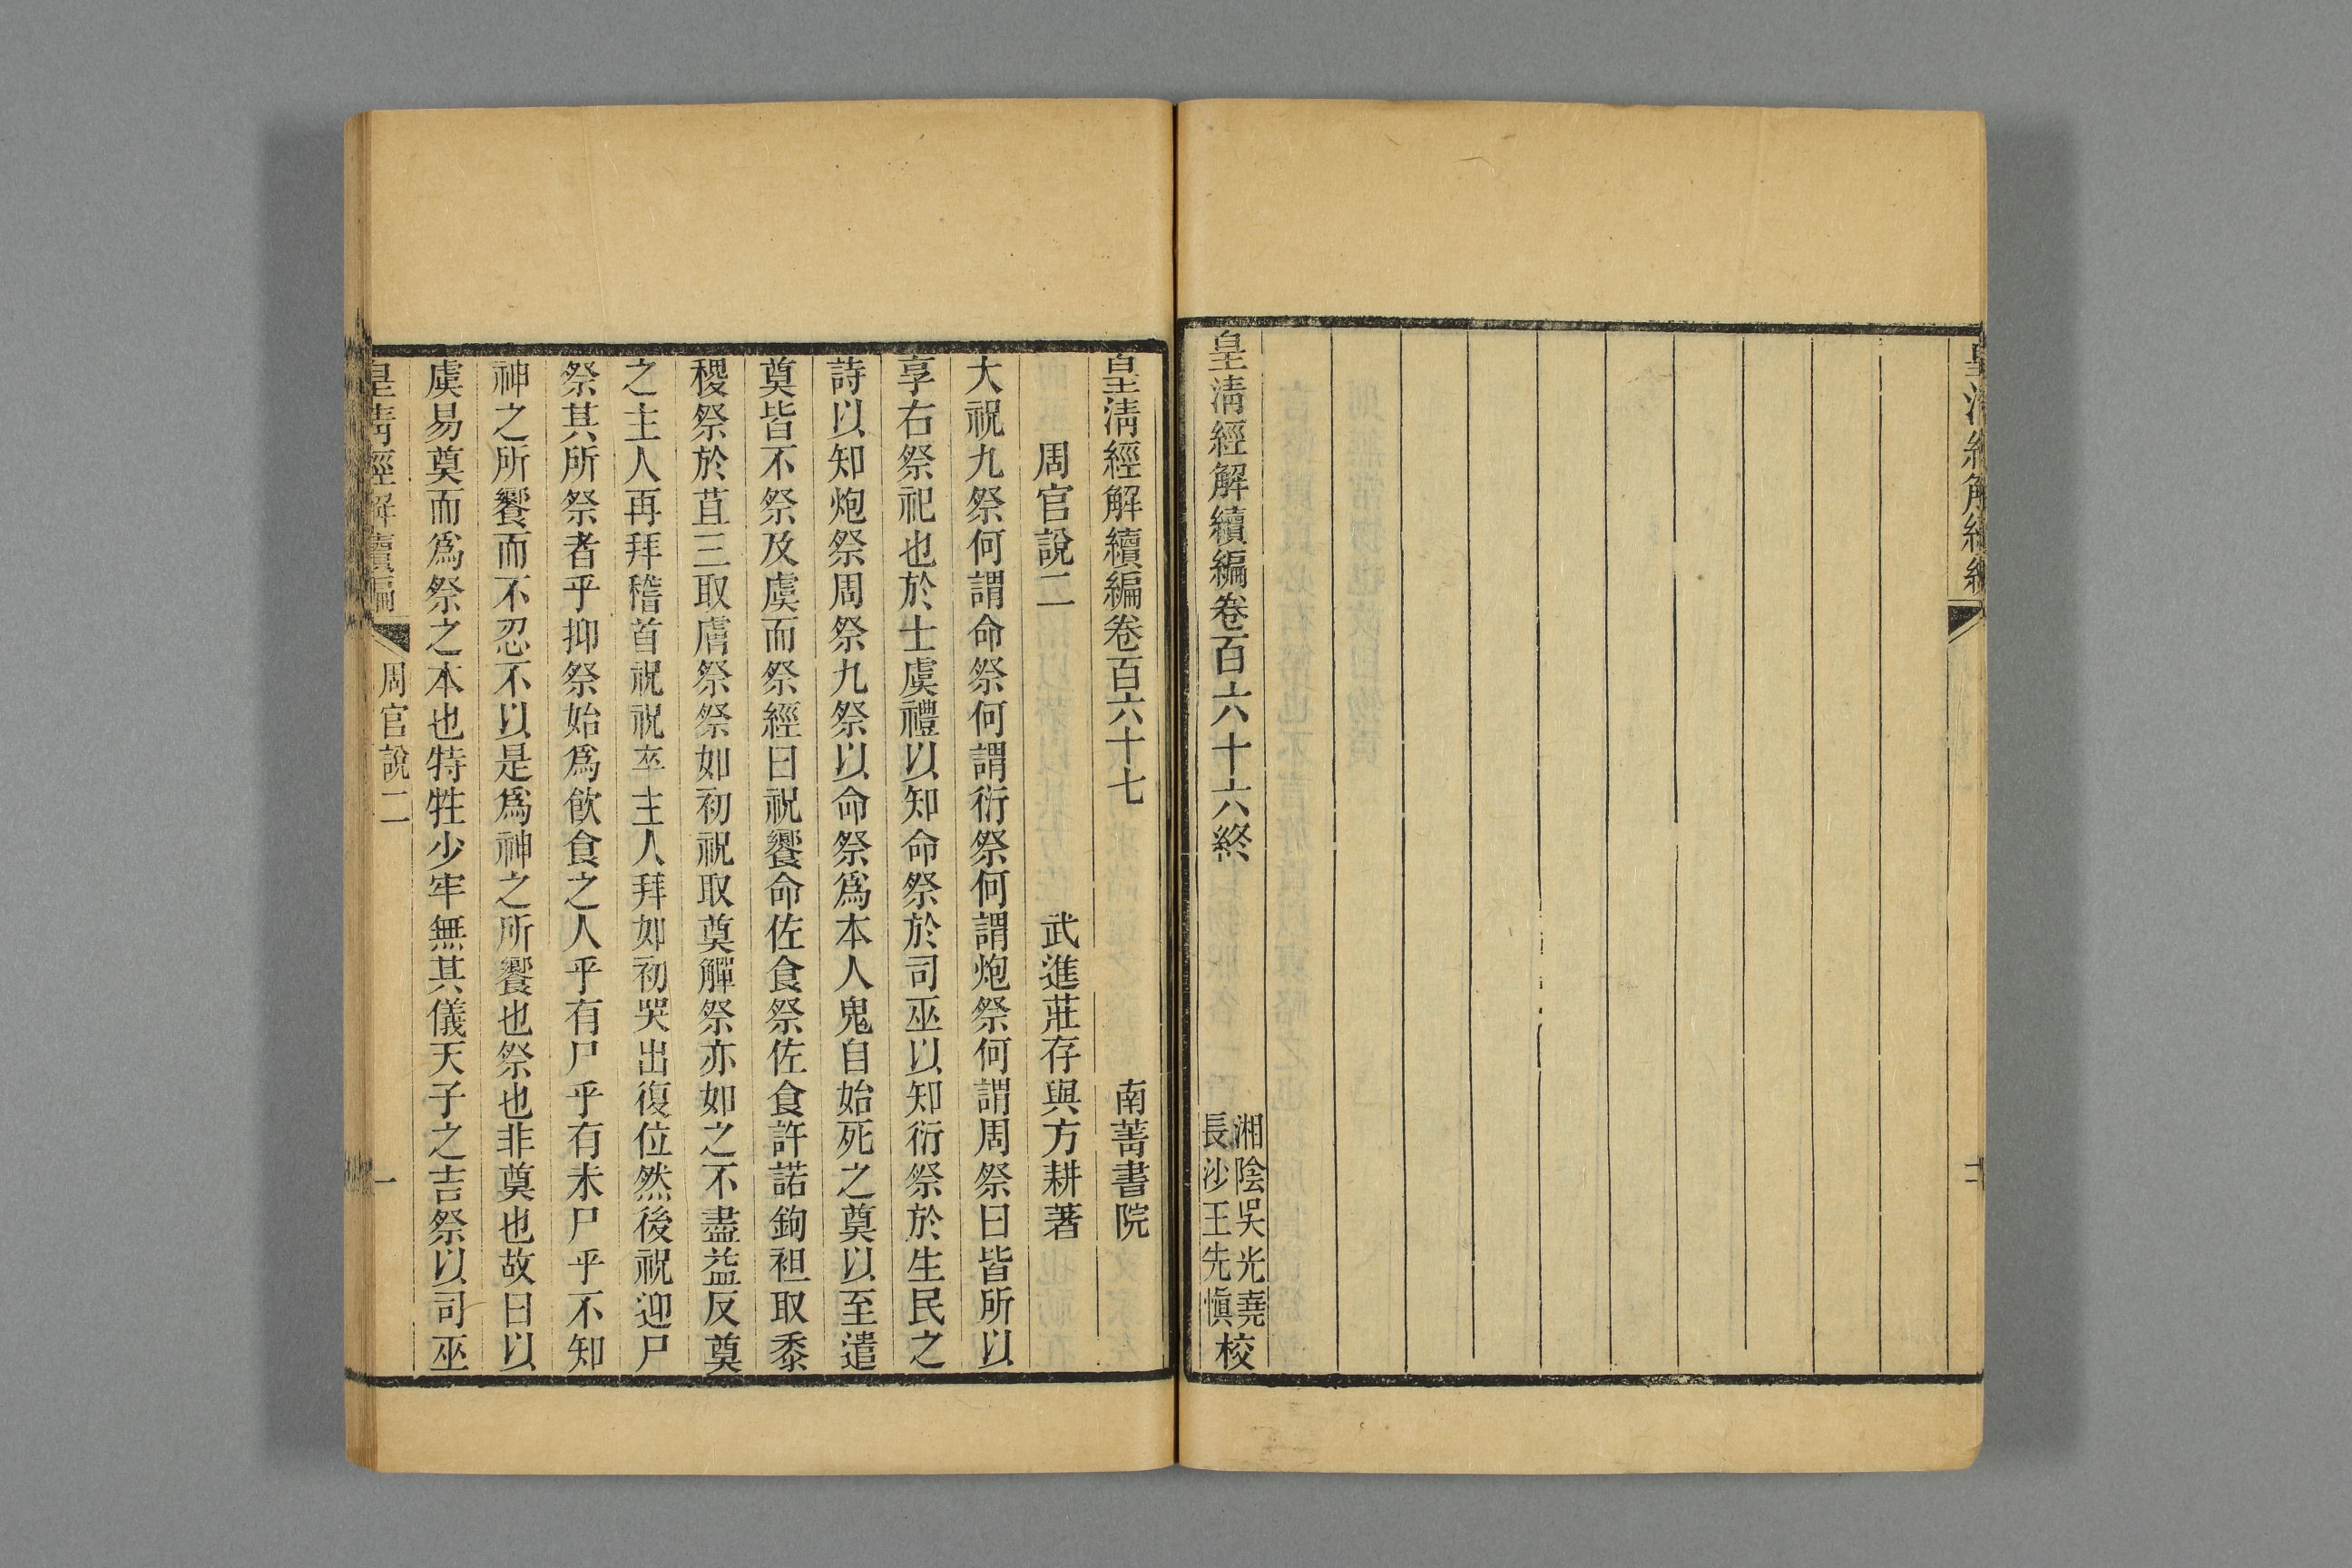 皇清經解續編
皇清經解續編卷百六十六終
湘陰吳光堯
長沙王先愼
校
皇清經解續編卷百六十七
南菁書院
周官說二
武進莊存與方耕著
大祝九祭何謂命祭何謂衍祭何謂炮祭何謂周祭曰皆所以
享右祭祀也於士虞禮以知命祭於司巫以知衍祭於生民之
詩以知炮祭周祭九祭以命祭爲本人鬼自始死之奠以至遣
奠皆不祭及虞而祭經曰祝饗命佐食祭佐食許諾鉤袒取黍
稷祭於苴三取膚祭祭如初祝取奠觶祭亦如之不盡益反奠
之主人再拜稽首祝祝卒主人拜如初哭出復位然後祝迎尸
祭其所祭者乎抑祭始爲飲食之人乎有尸乎有未尸乎不知
神之所饗而不忍不以是爲神之所饗也祭也非奠也故曰以
虞易奠而爲祭之本也特牲少牢無其儀天子之吉祭以司巫
皇清經解續編
周官說二
一